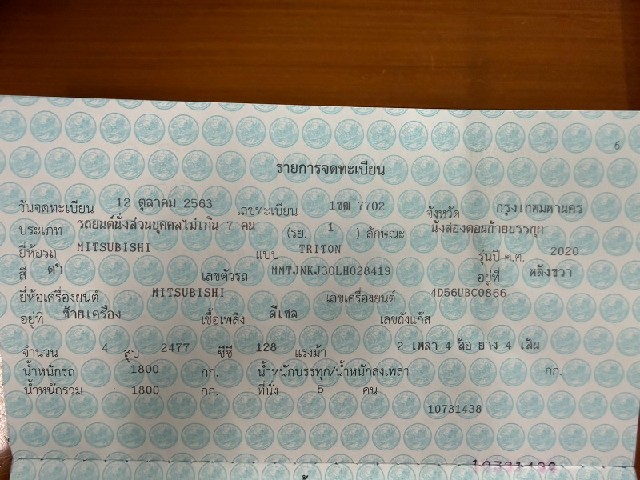 6
รายการจดทะเบียน
วันจดทะเบียน 12 ตุลาคม 2563 เลขทะเบียน 1ขฒ 7702 จังหวัด กรุงเทพมหานคร
ประเภท รถยนต์นั่งส่วนบุคคลไม่เกิน 7 คน (รย. 1 ) ลักษณะ นั่งสองตอนท้ายบรรทุก
ยี่ห้อรถ MITSUBISHI แบบ TRITON รุ่นปี ค.ศ. 2020
สี ดำ เลขตัวรถ MMTJNKJ30LH028419 อยู่ที่ หลังขวา
ยี่ห้อเครื่องยนต์ MITSUBISHI เลขเครื่องยนต์ 4D56UBC0866
อยู่ที่ ซ้ายเครื่อง เชื้อเพลิง ดีเซล เลขถังแก๊ส
จำนวน 4 สูบ 2477 ซีซี 128 แรงม้า 2 เพลา 4 ล้อ ยาง 4 เส้น
น้ำหนักรถ 1800 กก. น้ำหนักบรรทุก/น้ำหนักลงเพลา กก.
น้ำหนักรวม 1800 กก. ที่นั่ง 5 คน
10731438